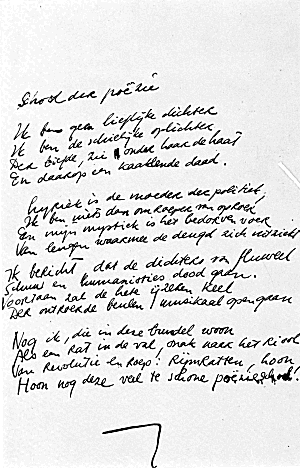 School der poëzie
Ik ben geen lieflijke dichter
Ik ben de schielijke oplichter
Der liefde, zie onder haar de haat
En daarop een kaaklende daad.
Lyriek is de moeder der politiek,
Ik ben niets dan omroeper van oproer
En mijn mystiek is het bedorven voer
Van leugen waarmee de deugd zich uitziekt
Ik bericht, dat de dichters van fluweel
Schuw en humanisties dood gaan.
Voortaan zal de hete ijzeren keel
Der ontroerde beulen muzikaal opengaan
Nog ik, die in deze bundel woon
Als een rat in de val, snak naar het riool
Van revolutie en roep: Rijmratten, hoon
Hoon nog deze veel te schone poëzieschool!